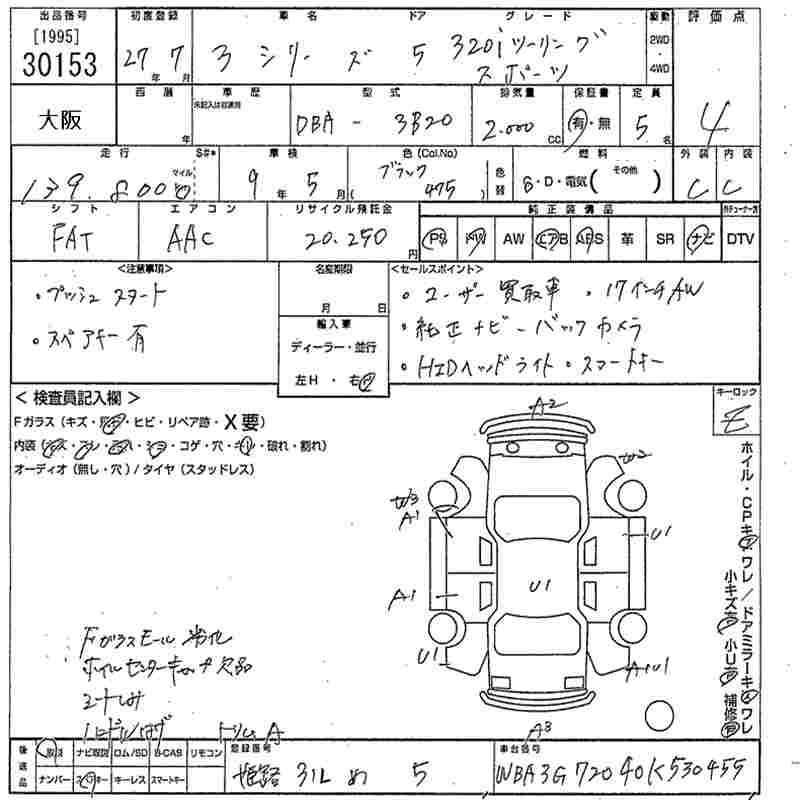 出品番号 初度登録 車名 ドア グレード 駆動 評価点
[1995]
30153 27年 7月 3シリーズ 5 320iツーリングスポーツ 2WD 4WD 4
大阪 西暦 年 車歴 未記入は自家用 型式 DBA - 3B20 排気量 2.000 CC 保証書 有・無 定員 5名
走行 139.800 マイル S#* 車検 9年5月 色(Col.No) ブラック (475) 色替 燃料 G・D・電気( その他 ) 外装 C 内装 C
シフト エアコン リサイクル預託金 純正装備品
FAT AAC 20.250円 PS PW AW エアB ABS 革 SR ナビ DTV
<注意事項> 名変期限 <セールスポイント>
・プッシュスタート 月 日 ・ユーザー買取車 ・17インチAW
・スペアキー有 輸入車 ・純正ナビ・バックカメラ
ディーラー・並行 ・HIDヘッドライト・スマートキー
左H・右H
<検査員記入欄> キーロック
Fガラス(キズ・・ヒビ・リペア跡・X要)
内装(・・・・コゲ・穴・・破れ・割れ)
オーディオ(無し・穴)/タイヤ(スタッドレス)
A2
W2
W3
A1
U1
A1
U1
U1
A1U1
A3
ホイル・CPキズワレ/ドアミラーキズワレ
小キズ有 小U有 補修有
Fガラスモール劣化
ホイルセンターキャップ欠品
シートしみ
ハンドルハゲ トリムA
後送品 取説 ナビ取説 ロム/SD B-CAS リモコン 登録番号 車台番号
ナンバー スペアキー キーレス スマートキー 姫路 31L め 5 WBA3G72040K530455